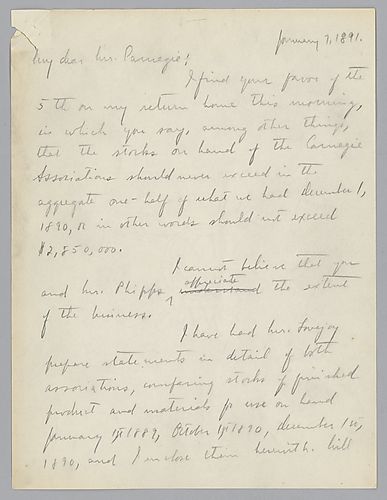 January 7, 1891.
My dear Mr. Carnegie:
I find your favor of the
5th on my return home this morning,
in which you say, among other things,
that the stocks on hand of the Carnegie
Associations should never exceed in the
aggregate one-half of what we had December 1,
1890, or in other words should not exceed
$2,850,000.
I cannot believe that you
appreciate
and Mr. Phipps ^ understand the extent
of the business.
I have had Mr. Lovejoy
prepare statements in detail of both
associations, comparing stocks of finished
product and materials for use on hand
January 1st 1889, October 1st 1890, December 1st,
1890, and I enclose them herewith. Will